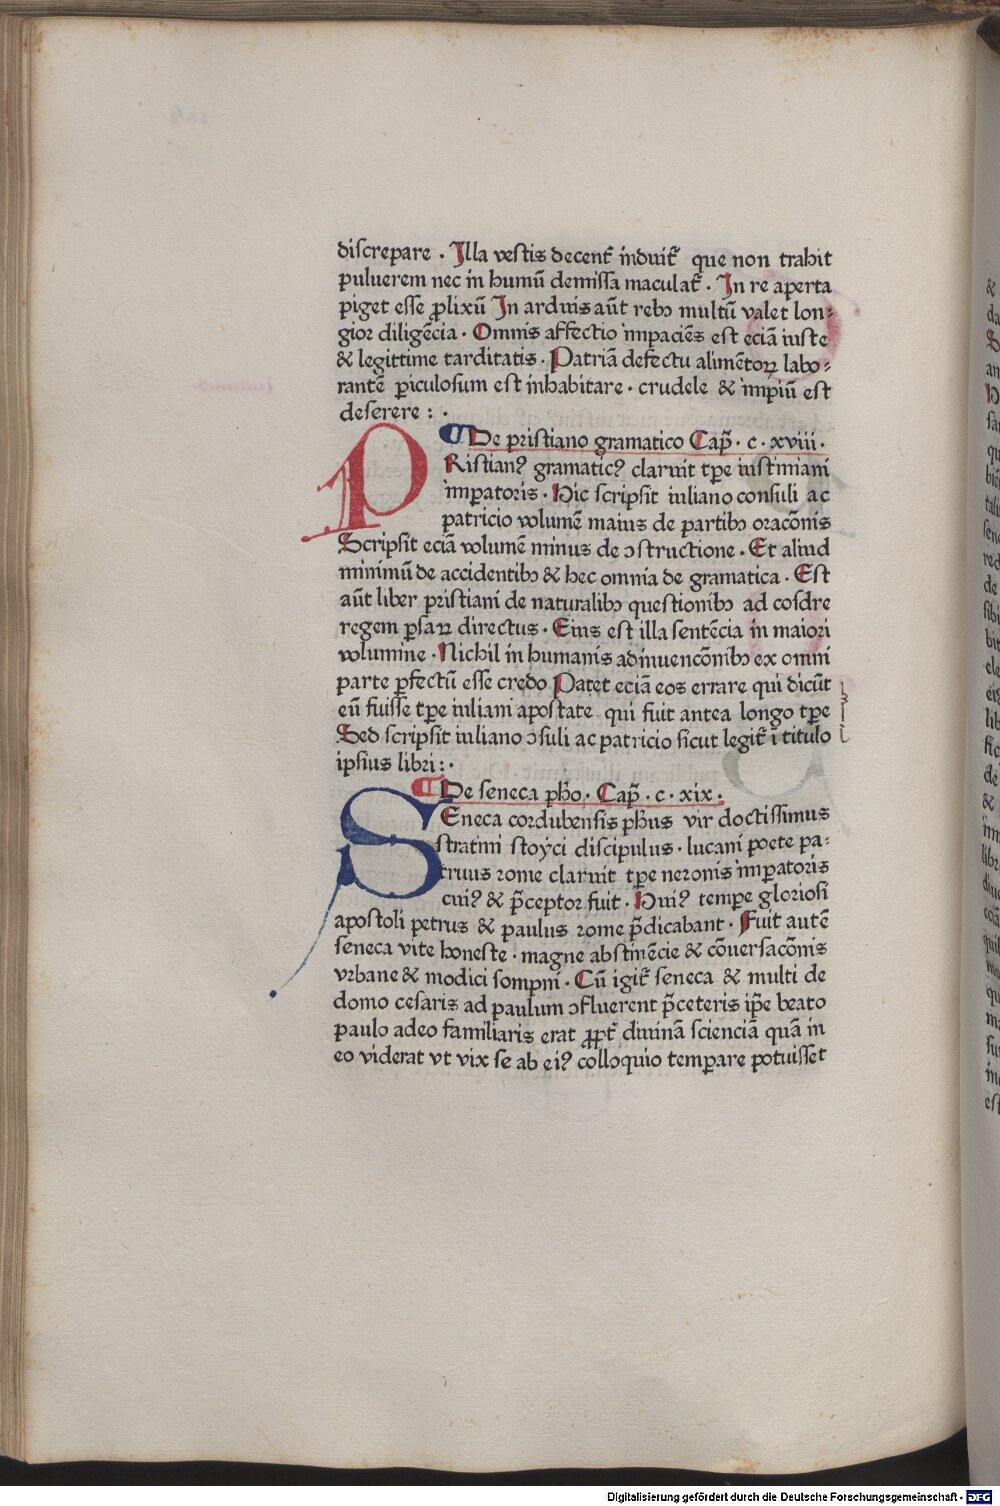 discrepare . Illa vestis decent᷑ induit᷑ que non trahit
puluerem nec in humū demissa maculat᷑ . In re aperta
piget esse ꝓlixū In arduis aūt rebꝫ multū valet lon⸗
gior diligēcia . Omnis affectio impaciēs est eciā iuste
& legittime tarditatis . Patriā defectu alimētoꝝ labo⸗
rantē ꝑiculosum est inhabitare . crudele & impiū est
deserere : .
¶ De pristiano gramatico Cap̄ . c . xviii .
PRistianꝰ gramaticꝰ claruit tꝑe iustiniani
imꝑatoris . Hic scripsit iuliano consuli ac
patricio volumē maius de partibꝫ oracōnis
Scripsit eciā volumē minus de ꝯstructione . Et aliud
minimū de accidentibꝫ & hec omnia de gramatica . Est
aūt liber pristiani de naturalibꝫ questionibꝫ ad cosdre
regem ꝑsaꝝ directus . Eius est illa sentēcia in maiori
volumine . Nichil in humanis adinuencōnibꝫ ex omni
parte ꝑfectū esse credo Patet eciā eos errare qui dicūt
eū fuisse tꝑe iuliani apostate qui fuit antea longo tꝑe
Sed scripsit iuliano ꝯsuli ac patricio sicut legit᷑ ī titulo
ipsius libri : .
¶ De seneca pħo . Cap̄ . c . xix .
SEneca cordubensis pħus vir doctissimus
stratini stoyci discipulus . lucani poete pa⸗
truus rome claruit tꝑe neronis imꝑatoris
cuiꝰ & p̄ceptor fuit . Huiꝰ tempe gloriosi
apostoli petrus & paulus rome p̄dicabant . Fuit autē
seneca vite honeste . magne abstinēcie & cōuersacōnis
vrbane & modici sompni . Cū igit᷑ seneca & multi de
domo cesaris ad paulum ꝯfluerent p̄ceteris ip̄e beato
paulo adeo familiaris erat ꝓpt᷑ diuinā scienciā quā in
eo viderat vt vix se ab eiꝰ colloquio temꝑare potuisset
Digitalisierung gefördert durch die Deutsche Forschungsgemeinschaft - DFG